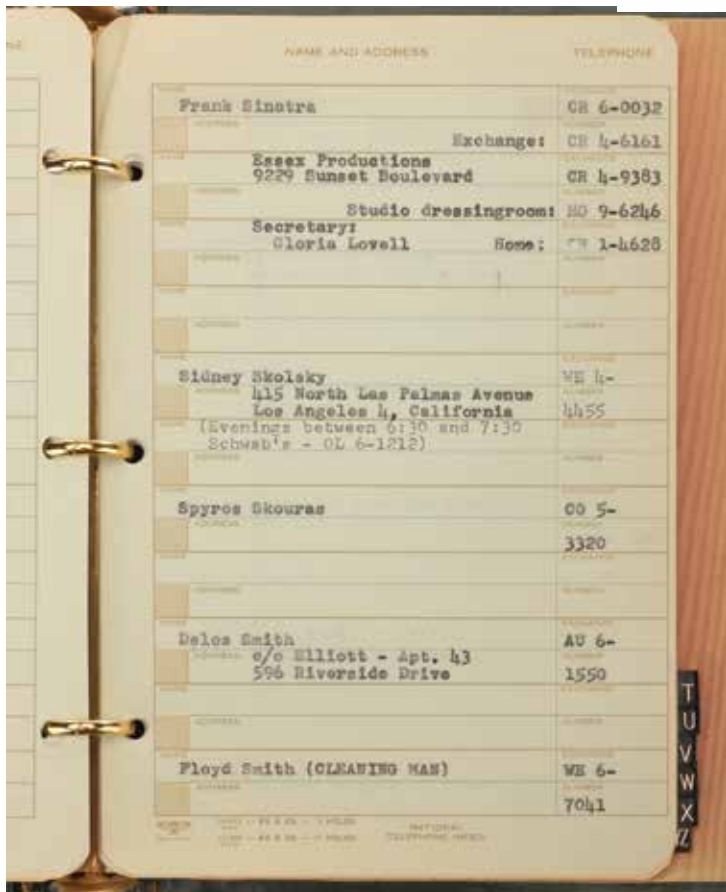 NAME AND ADDRESS TELEPHONE
Frank Sinatra CR 6-0032
Exchange: CR 4-6161
Essex Productions
9229 Sunset Boulevard CR 4-9383
Studio dressingroom: HO 9-6246
Secretary:
Gloria Lovell Home: CR 1-4628
Sidney Skolsky WE 4-
415 North Las Palmas Avenue
Los Angeles 4, California 4455
(Evenings between 6:30 and 7:30
Schwab's - OL 6-1212)
Spyros Skouras CO 5-
3320
Delos Smith AU 6-
c/o Elliott - Apt. 43
596 Riverside Drive 1550
Floyd Smith (CLEANING MAN) WE 6-
7041
NATIONAL
TELEPHONE INDEX
T
U
V
W
X